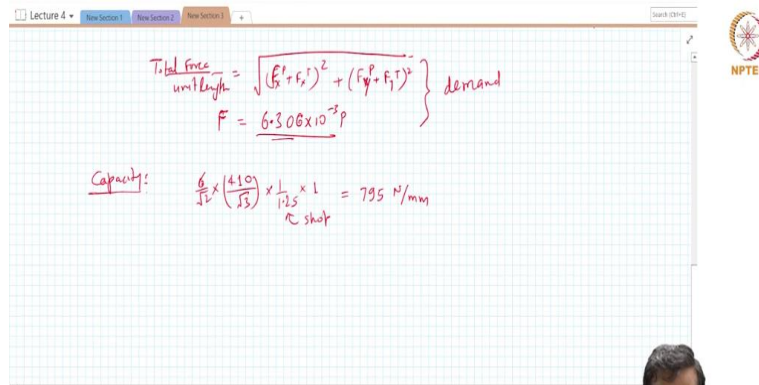 Lecture 4 New Section 1 New Section 2 New Section 3 + Search (Ctrl+E)
NPTE
Total Force / unit length = √((Fx^P + Fx^T)² + (Fy^P + Fy^T)²) } demand
F = 6.306×10^-3 P
Capacity: 6/√2 × (410/√3) × 1/1.25 × 1 = 795 N/mm
shop